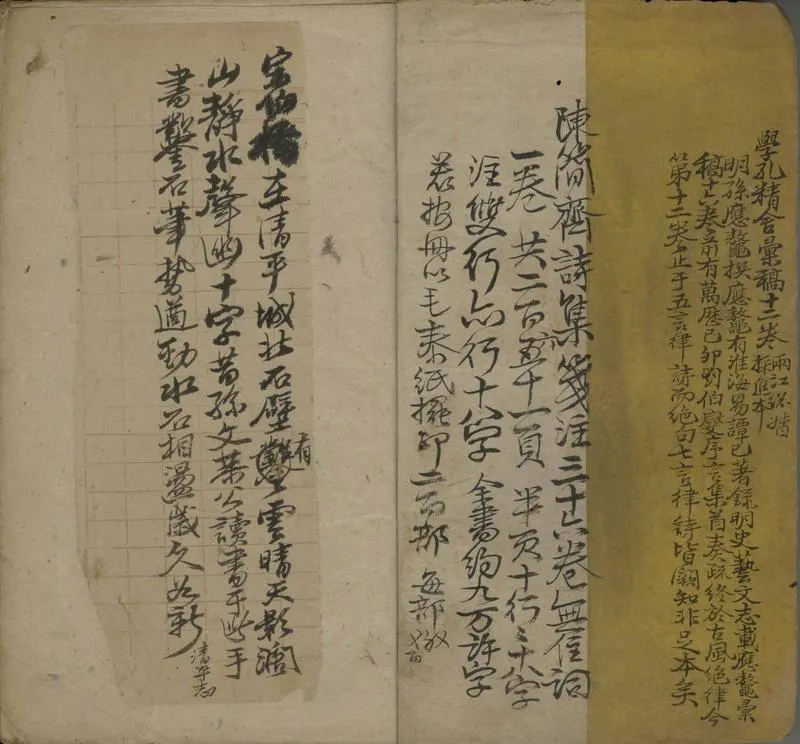 學孔精舍彙稿十二卷 兩江總督採進本
明孫應鰲撰應鰲有淮海易譚已著錄明史藝文志載應鰲彙
稿十六卷前有萬歷己卯劉伯燮序言集首奏疏終於古風絶律今
第十二卷止于五言律詩而絶句七言律詩皆闕知非足本矣
陳簡齋詩集箋注三十卷無住詞
一卷 共二百五十一頁 半页十行二十八字
注雙行亦行十八字 全書約九万許字
若按冊以毛泰紙擺印二百部 每部
在清平城北石壁有鑿雲晴天影濶
山靜水聲幽十字昔孫文恭公讀書于此手
書鑿石筆勢遒勁水石相盪歲久如新
清平志